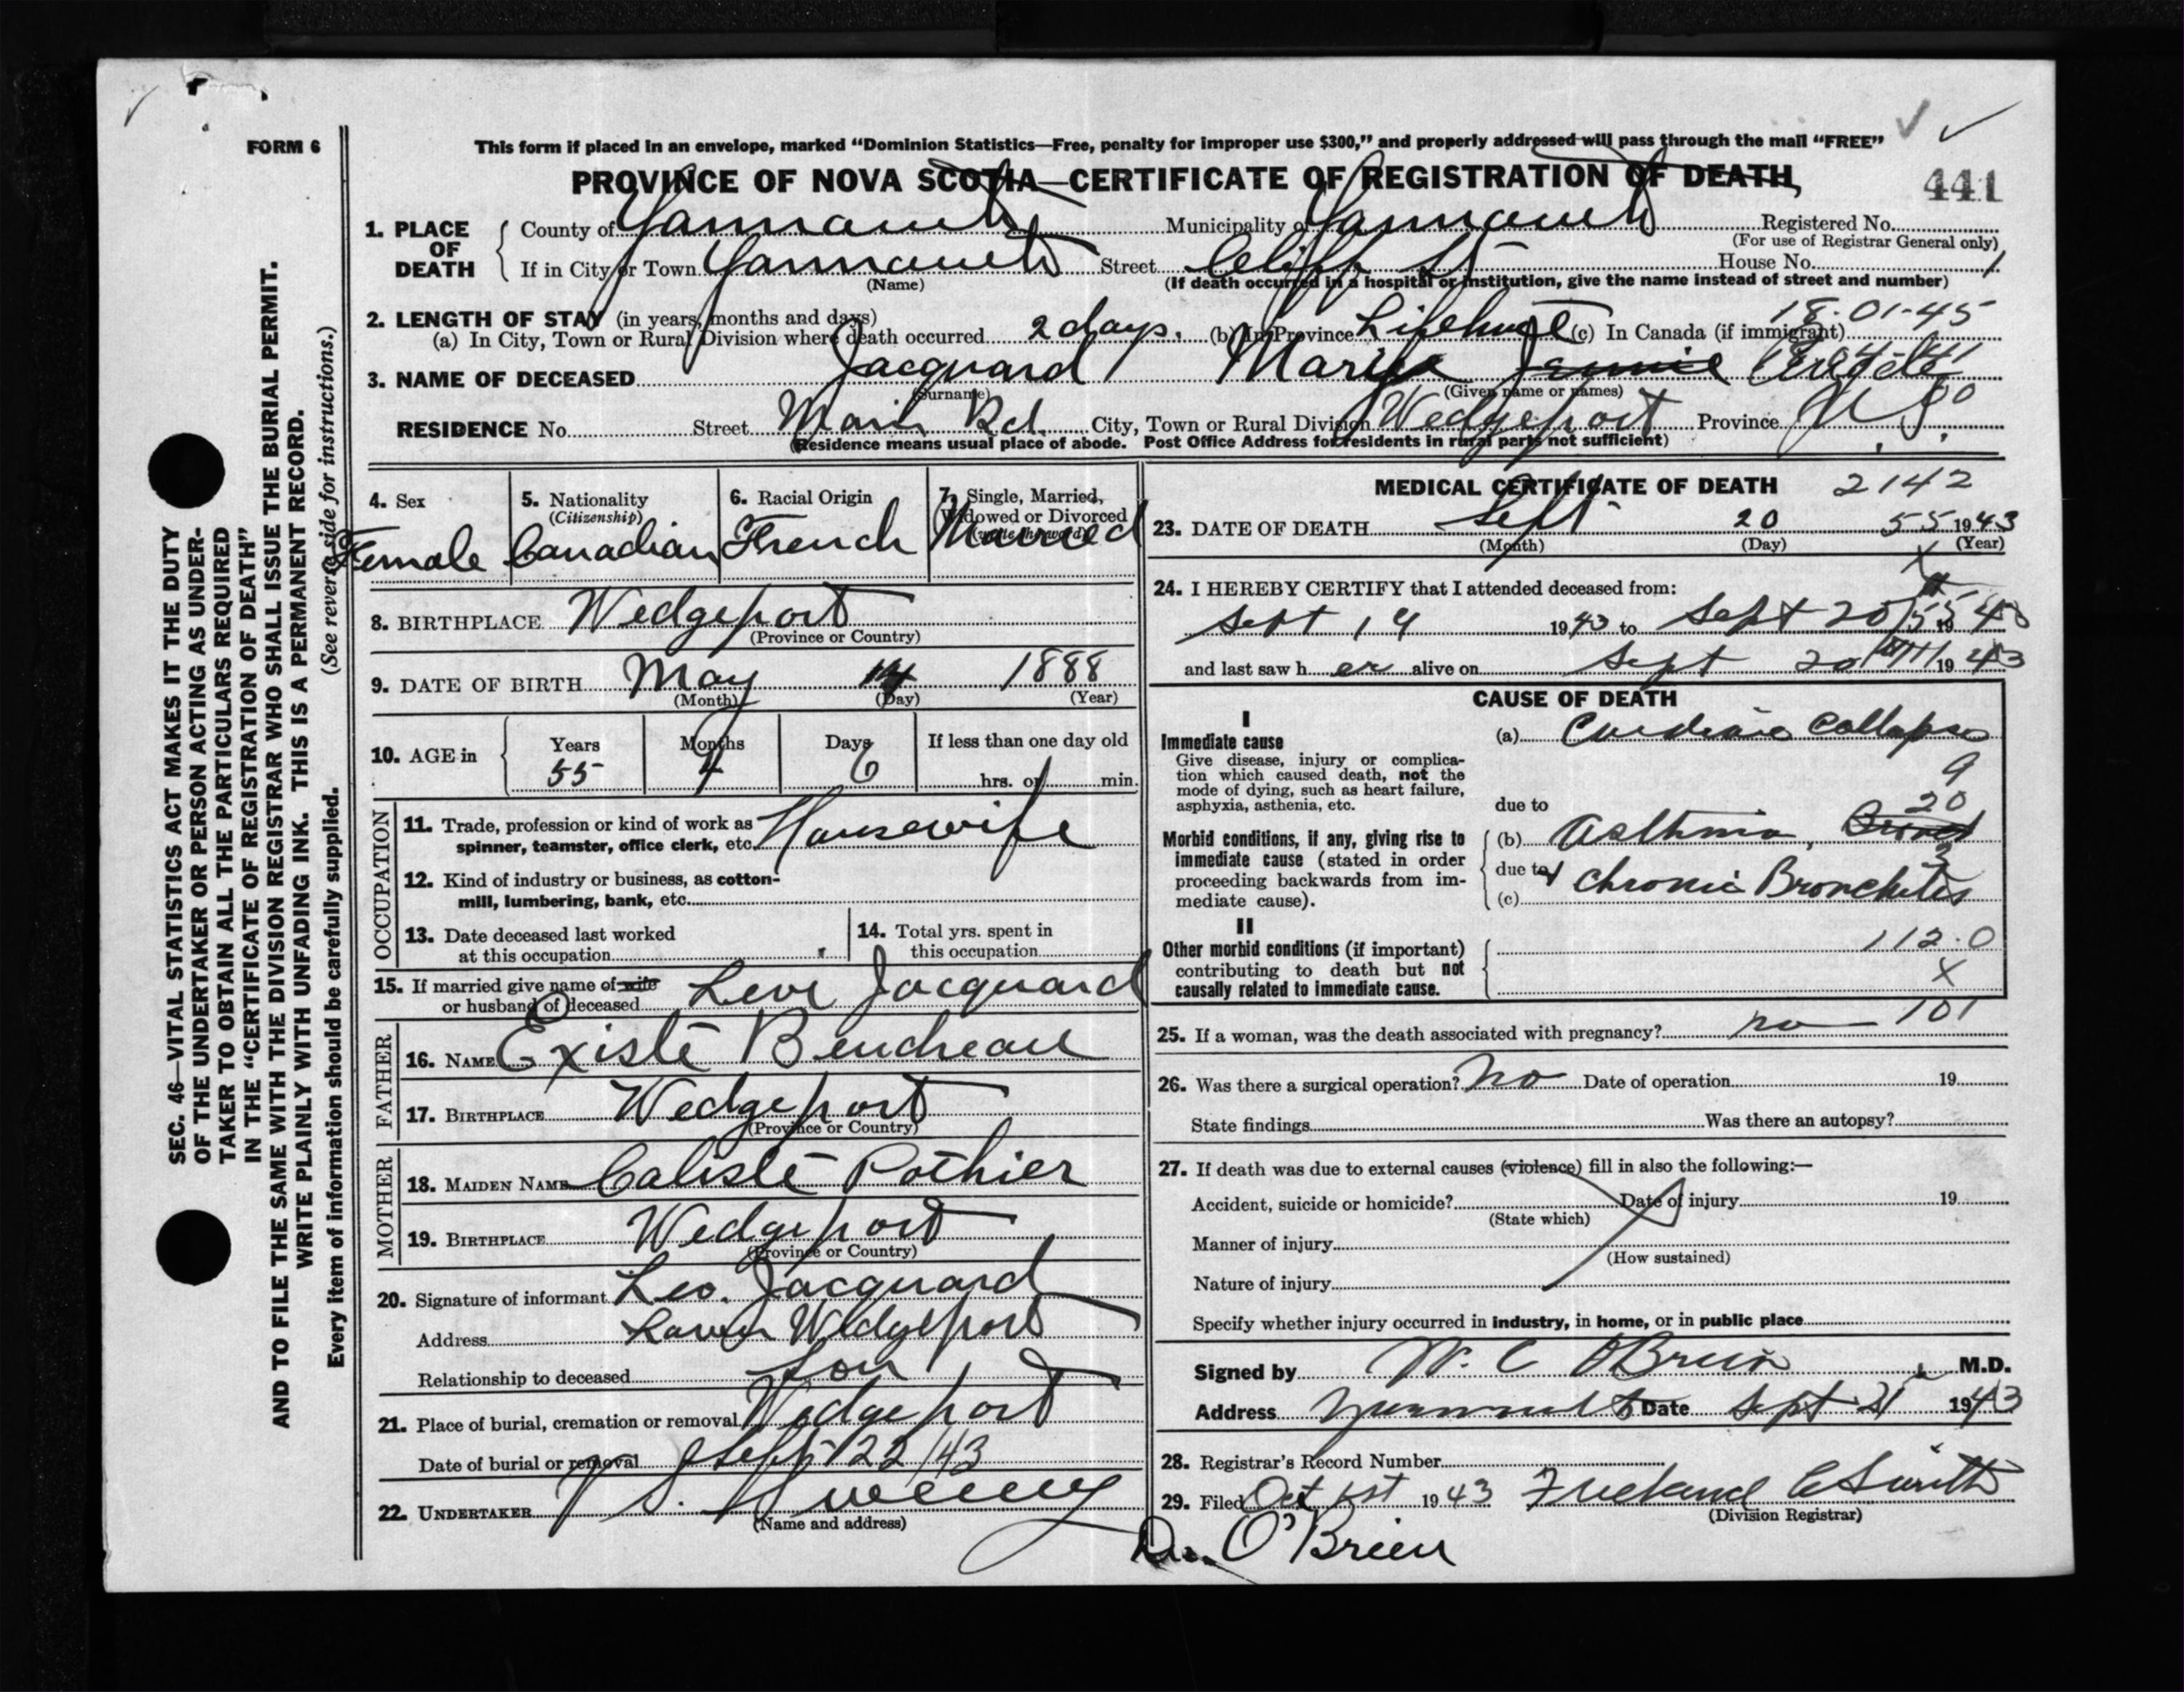 FORM 6
This form if placed in an envelope, marked “Dominion Statistics—Free, penalty for improper use $300,” and properly addressed will pass through the mail “FREE”
PROVINCE OF NOVA SCOTIA—CERTIFICATE OF REGISTRATION OF DEATH
441
1. PLACE OF DEATH
County of Yarmouth Municipality of Yarmouth Registered No.
(For use of Registrar General only)
If in City or Town Yarmouth Street Cliff St House No. 1
(Name)
(If death occurred in a hospital or institution, give the name instead of street and number)
2. LENGTH OF STAY (in years, months and days) 18-01-45
(a) In City, Town or Rural Division where death occurred 2 days. (b) In Province Lifetime (c) In Canada (if immigrant)
3. NAME OF DECEASED Jacquard Marie Jennie
(Surname) (Given name or names)
RESIDENCE No. Street Main Rd. City, Town or Rural Division Wedgeport Province N.S.
(Residence means usual place of abode. Post Office Address for residents in rural parts not sufficient)
4. Sex
Female
5. Nationality
(Citizenship)
Canadian
6. Racial Origin
French
7. Single, Married,
Widowed or Divorced
Married
8. BIRTHPLACE Wedgeport
(Province or Country)
9. DATE OF BIRTH May 14 1888
(Month) (Day) (Year)
10. AGE in Years Months Days If less than one day old
55 4 6 hrs. or min.
OCCUPATION
11. Trade, profession or kind of work as
spinner, teamster, office clerk, etc. Housewife
12. Kind of industry or business, as cotton-
mill, lumbering, bank, etc.
13. Date deceased last worked
at this occupation
14. Total yrs. spent in
this occupation
15. If married give name of wife
or husband of deceased Levi Jacquard
FATHER
16. NAME Existe Beudreau
17. BIRTHPLACE Wedgeport
(Province or Country)
MOTHER
18. MAIDEN NAME Caliste Pothier
19. BIRTHPLACE Wedgeport
(Province or Country)
20. Signature of informant Leo. Jacquard
Address Lower Wedgeport
Relationship to deceased Son
21. Place of burial, cremation or removal Wedgeport
Date of burial or removal Sept 22/43
22. UNDERTAKER V S. Sweeney
(Name and address)
MEDICAL CERTIFICATE OF DEATH 2142
23. DATE OF DEATH Sept 20 55 1943
(Month) (Day) (Year)
X
24. I HEREBY CERTIFY that I attended deceased from:
Sept 14 1943 to Sept 20 55 1943
and last saw her alive on Sept 20 1943
CAUSE OF DEATH
I
Immediate cause
Give disease, injury or complica-
tion which caused death, not the
mode of dying, such as heart failure,
asphyxia, asthenia, etc.
(a) Cardiac Collapse
9
due to
20
Morbid conditions, if any, giving rise to
immediate cause (stated in order
proceeding backwards from im-
mediate cause).
(b) Asthma, Bronch
3
due to
(c) Chronic Bronchitis
II
Other morbid conditions (if important)
contributing to death but not
causally related to immediate cause.
112.0
X
25. If a woman, was the death associated with pregnancy? no 101
26. Was there a surgical operation? No Date of operation 19
State findings Was there an autopsy?
27. If death was due to external causes (violence) fill in also the following:—
Accident, suicide or homicide? Date of injury 19
(State which)
Manner of injury
(How sustained)
Nature of injury
Specify whether injury occurred in industry, in home, or in public place
Signed by W. C O'Brien, M.D.
Address Yarmouth Date Sept 21 1943
28. Registrar's Record Number
29. Filed Oct 1st 1943 Freeland C Smith
(Division Registrar)
Dr. O'Brien
SEC. 46—VITAL STATISTICS ACT MAKES IT THE DUTY
OF THE UNDERTAKER OR PERSON ACTING AS UNDER-
TAKER TO OBTAIN ALL THE PARTICULARS REQUIRED
IN THE “CERTIFICATE OF REGISTRATION OF DEATH”
AND TO FILE THE SAME WITH THE DIVISION REGISTRAR WHO SHALL ISSUE THE BURIAL PERMIT.
WRITE PLAINLY WITH UNFADING INK. THIS IS A PERMANENT RECORD.
Every item of information should be carefully supplied. (See reverse side for instructions.)